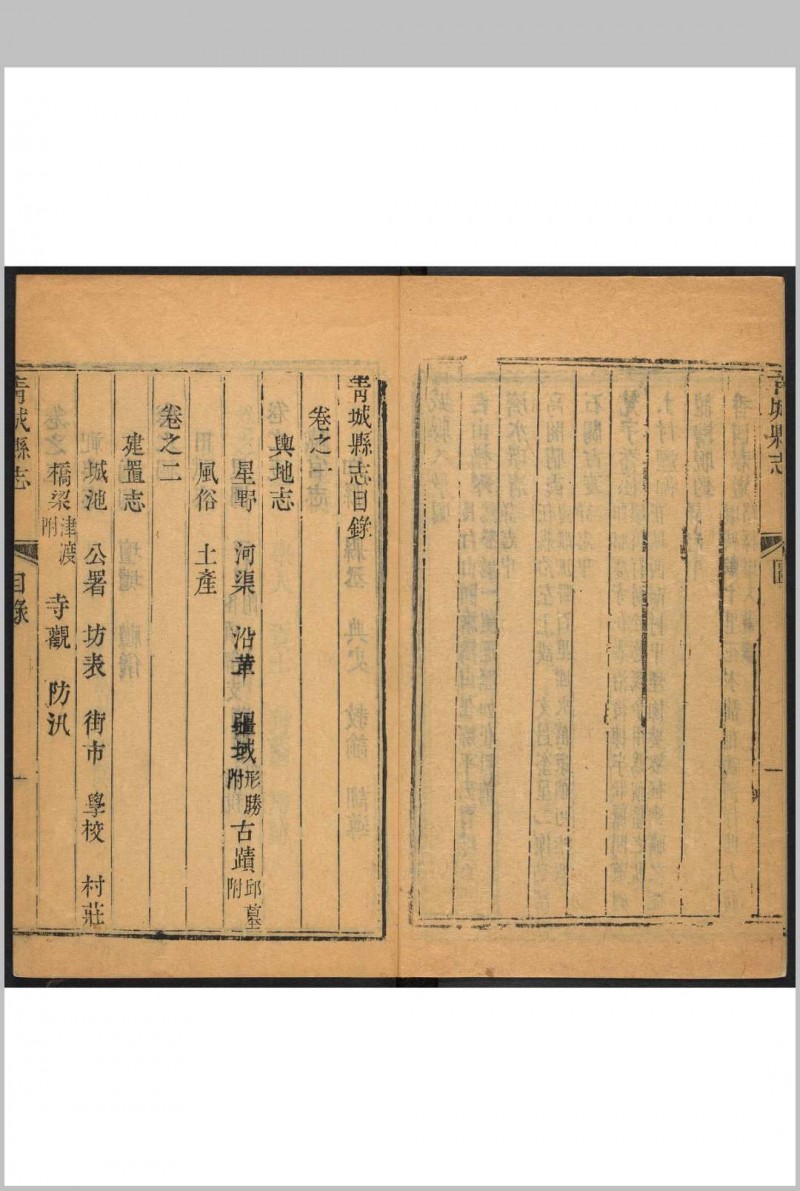 青城縣志
圖
一
青城縣志目錄
卷之一
輿地志
星野 河渠 沿革 疆域形勝附 古蹟邱墓附
風俗 土產
卷之二
建置志
城池 公署 坊表 街市 學校 村莊
橋梁津渡附 寺觀 防汛
青城縣志
目錄
一